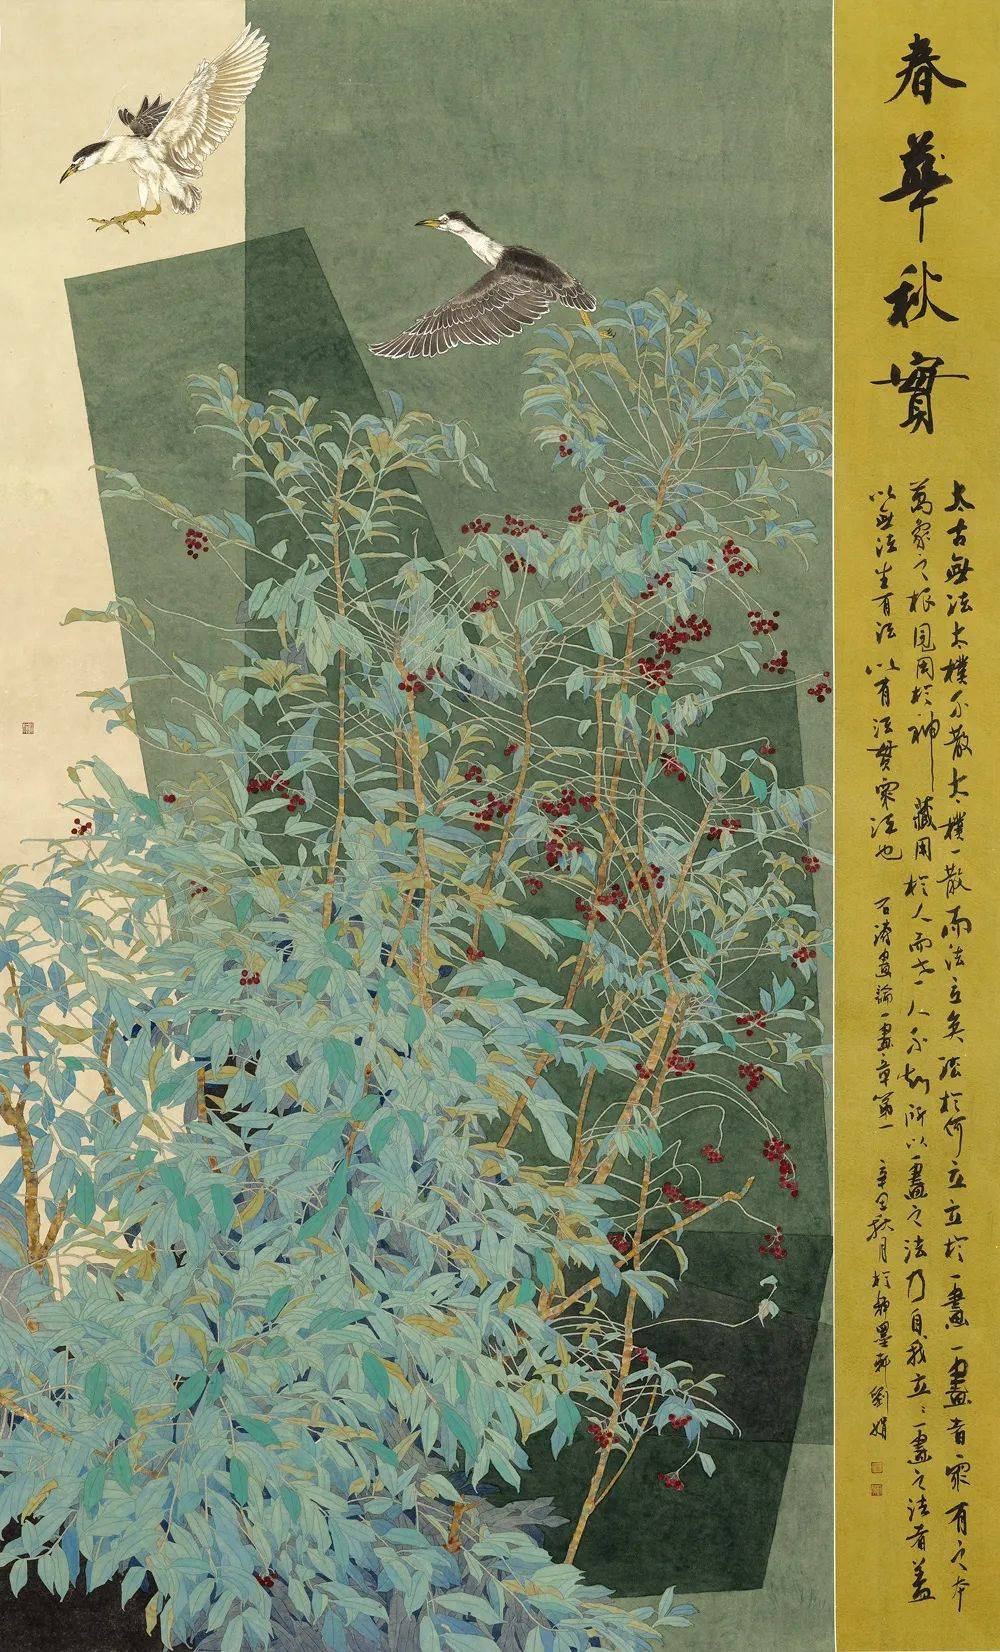 春華秋實
太古無法太樸不散太樸一散而法立矣法於何立立於一畫一畫者眾有之本
萬象之根見用於神藏用於人而世人不知所以一畫之法乃自我立立一畫之法者蓋
以無法生有法以有法貫眾法也 石濤畫論一畫章第一 辛丑秋月於墨軒劉娟